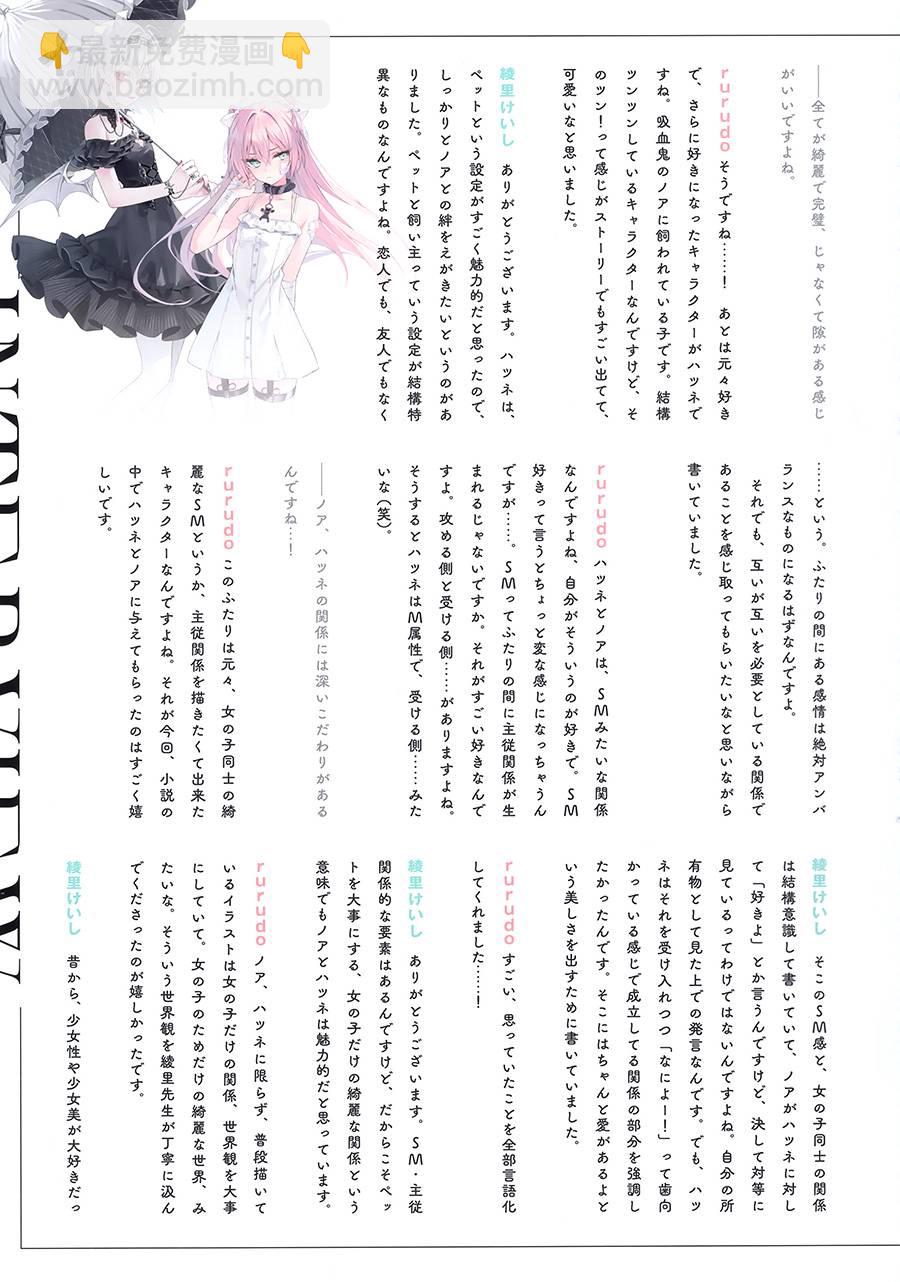 最新免费漫画
www.baozimh.com
INTERVIEW
――全てが綺麗で完璧、じゃなくて隙がある感じ
がいいですよね。
rurudo そうですね……！　あとは元々好き
で、さらに好きになったキャラクターがハツネで
すね。吸血鬼のノアに飼われている子です。結構
ツンツンしているキャラクターなんですけど、そ
のツン！って感じがストーリーでもすごい出てて、
可愛いなと思いました。
綾里けいし　ありがとうございます。ハツネは、
ペットという設定がすごく魅力的だと思ったので、
しっかりとノアとの絆をえがきたいというのがあ
りました。ペットと飼い主っていう設定が結構特
異なものなんですよね。恋人でも、友人でもなく
……という。ふたりの間にある感情は絶対アンバ
ランスなものになるはずなんですよ。
それでも、互いが互いを必要としている関係で
あることを感じ取ってもらいたいなと思いながら
書いていました。
rurudo ハツネとノアは、SMみたいな関係
なんですよね、自分がそういうのが好きで。SM
好きって言うとちょっと変な感じになっちゃうん
ですが……。SMってふたりの間に主従関係が生
まれるじゃないですか。それがすごい好きなんで
すよ。攻める側と受ける側……がありますよね。
そうするとハツネはM属性で、受ける側……みた
いな（笑）。
――ノア、ハツネの関係には深いこだわりがある
んですね…！
rurudo このふたりは元々、女の子同士の綺
麗なSMというか、主従関係を描きたくて出来た
キャラクターなんですよね。それが今回、小説の
中でハツネとノアに与えてもらったのはすごく嬉
しいです。
綾里けいし　そこのSM感と、女の子同士の関係
は結構意識して書いていて、ノアがハツネに対し
て「好きよ」とか言うんですけど、決して対等に
見ているってわけではないんですよね。自分の所
有物として見た上での発言なんです。でも、ハツ
ネはそれを受け入れつつ「なによー！」って歯向
かっている感じで成立してる関係の部分を強調し
たかったんです。そこにはちゃんと愛があるよと
いう美しさを出すために書いていました。
rurudo すごい、思っていたことを全部言語化
してくれました……！
綾里けいし　ありがとうございます。SM・主従
関係的な要素はあるんですけど、だからこそペッ
トを大事にする、女の子だけの綺麗な関係という
意味でもノアとハツネは魅力的だと思っています。
rurudo ノア、ハツネに限らず、普段描いて
いるイラストは女の子だけの関係、世界観を大事
にしていて。女の子のためだけの綺麗な世界、み
たいな。そういう世界観を綾里先生が丁寧に汲ん
でくださったのが嬉しかったです。
綾里けいし　昔から、少女性や少女美が大好きだっ